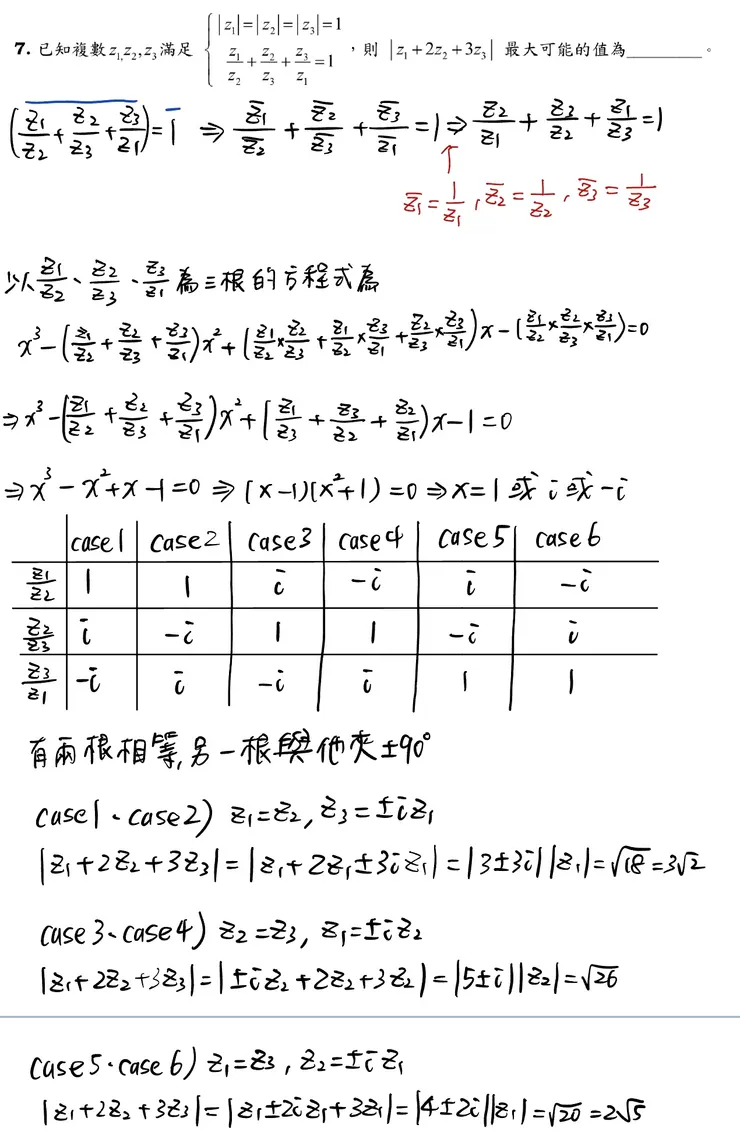 7. 已知複數 z₁,z₂,z₃ 滿足 { |z₁|=|z₂|=|z₃|=1 ; z₁/z₂ + z₂/z₃ + z₃/z₁ = 1 ，則 |z₁+2z₂+3z₃| 最大可能的值為________。
(z₁/z₂ + z₂/z₃ + z₃/z₁)‾ = 1̄ ⇒ z̄₁/z̄₂ + z̄₂/z̄₃ + z̄₃/z̄₁ = 1 ⇒ z₂/z₁ + z₃/z₂ + z₁/z₃ = 1
↑
z̄₁ = 1/z₁ , z̄₂ = 1/z₂ , z̄₃ = 1/z₃
以 z₁/z₂、z₂/z₃、z₃/z₁ 為三根的方程式為
x³ - (z₁/z₂ + z₂/z₃ + z₃/z₁)x² + (z₁/z₂ × z₂/z₃ + z₁/z₂ × z₃/z₁ + z₂/z₃ × z₃/z₁)x - (z₁/z₂ × z₂/z₃ × z₃/z₁) = 0
⇒ x³ - (z₁/z₂ + z₂/z₃ + z₃/z₁)x² + (z₁/z₃ + z₃/z₂ + z₂/z₁)x - 1 = 0
⇒ x³ - x² + x - 1 = 0 ⇒ (x-1)(x²+1) = 0 ⇒ x = 1 或 i 或 -i
case1 case2 case3 case4 case5 case6
z₁/z₂ 1 1 i -i i -i
z₂/z₃ i -i 1 1 -i i
z₃/z₁ -i i -i i 1 1
有兩根相等,另一根與他夾±90°
case1、case2) z₁=z₂, z₃=±iz₁
|z₁+2z₂+3z₃|=|z₁+2z₁±3iz₁|=|3±3i||z₁|=√18=3√2
case3、case4) z₂=z₃, z₁=±iz₂
|z₁+2z₂+3z₃|=|±iz₂+2z₂+3z₂|=|5±i||z₂|=√26
case5、case6) z₁=z₃, z₂=±iz₁
|z₁+2z₂+3z₃|=|z₁±2iz₁+3z₁|=|4±2i||z₁|=√20=2√5